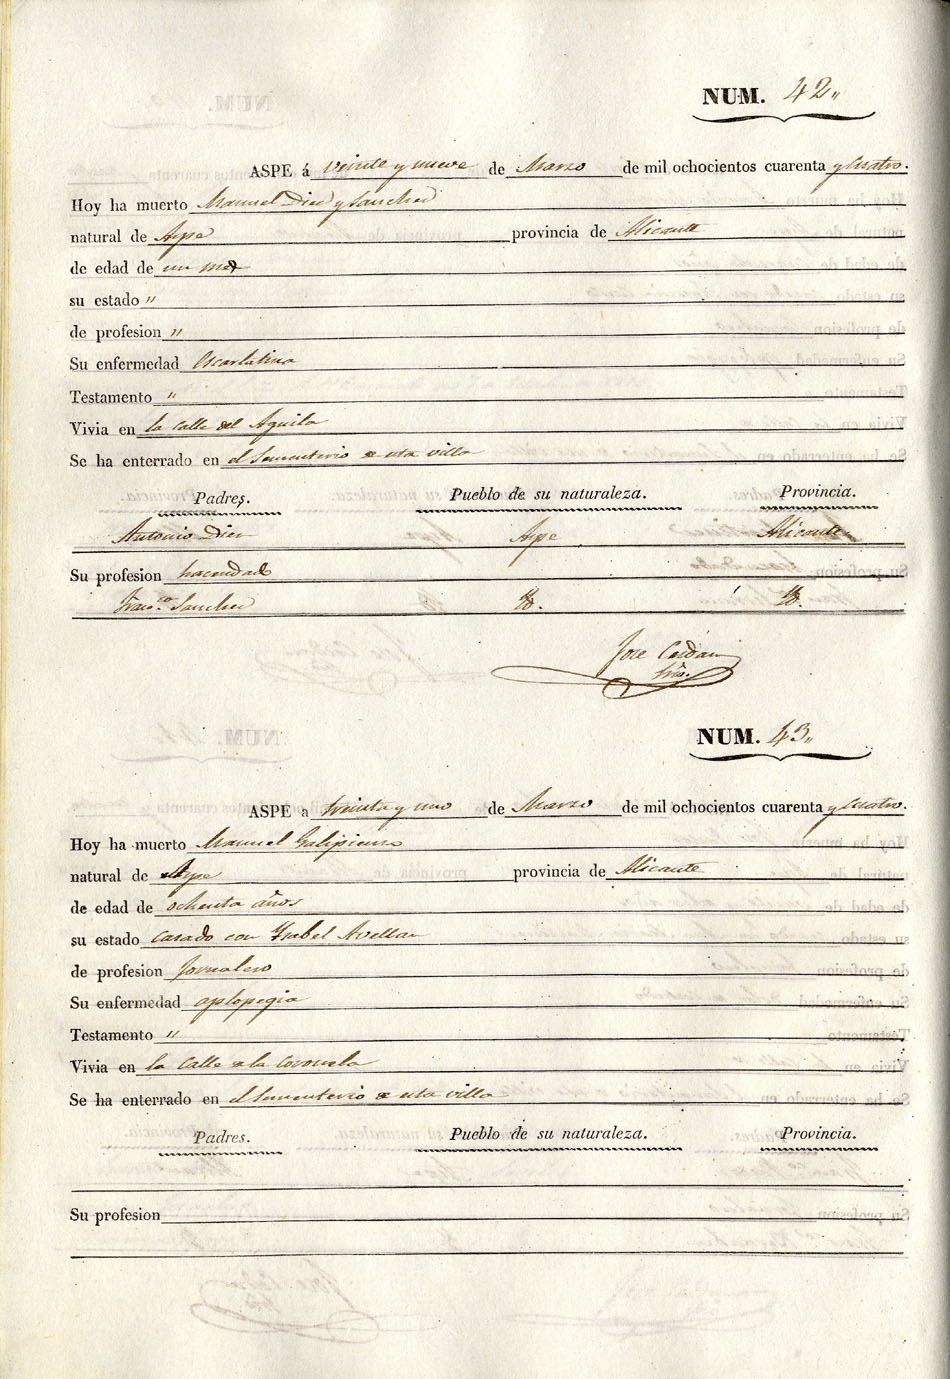 NUM. 42,,
ASPE á veinte y nueve de Marzo de mil ochocientos cuarenta y cuatro.
Hoy ha muerto Manuel Diez y Sanchez
natural de Aspe provincia de Alicante
de edad de un mes
su estado ,,
de profesion ,,
Su enfermedad Escarlatina
Testamento ,,
Vivia en la calle del Aguila
Se ha enterrado en el Sementerio de esta villa
Padres. Pueblo de su naturaleza. Provincia.
Antonio Diez Aspe Alicante
Su profesion hacendado
Franco. Sanchez Yd. Yd.
Jose Cerdan
NUM. 43,,
ASPE a treinta y uno de Marzo de mil ochocientos cuarenta y cuatro.
Hoy ha muerto Manuel Galipienso
natural de Aspe provincia de Alicante
de edad de ochenta años
su estado casado con Ysabel Avellan
de profesion Jornalero
Su enfermedad aplopegia
Testamento ,,
Vivia en la calle de la Coronela
Se ha enterrado en el Sementerio de esta villa
Padres. Pueblo de su naturaleza. Provincia.
Su profesion